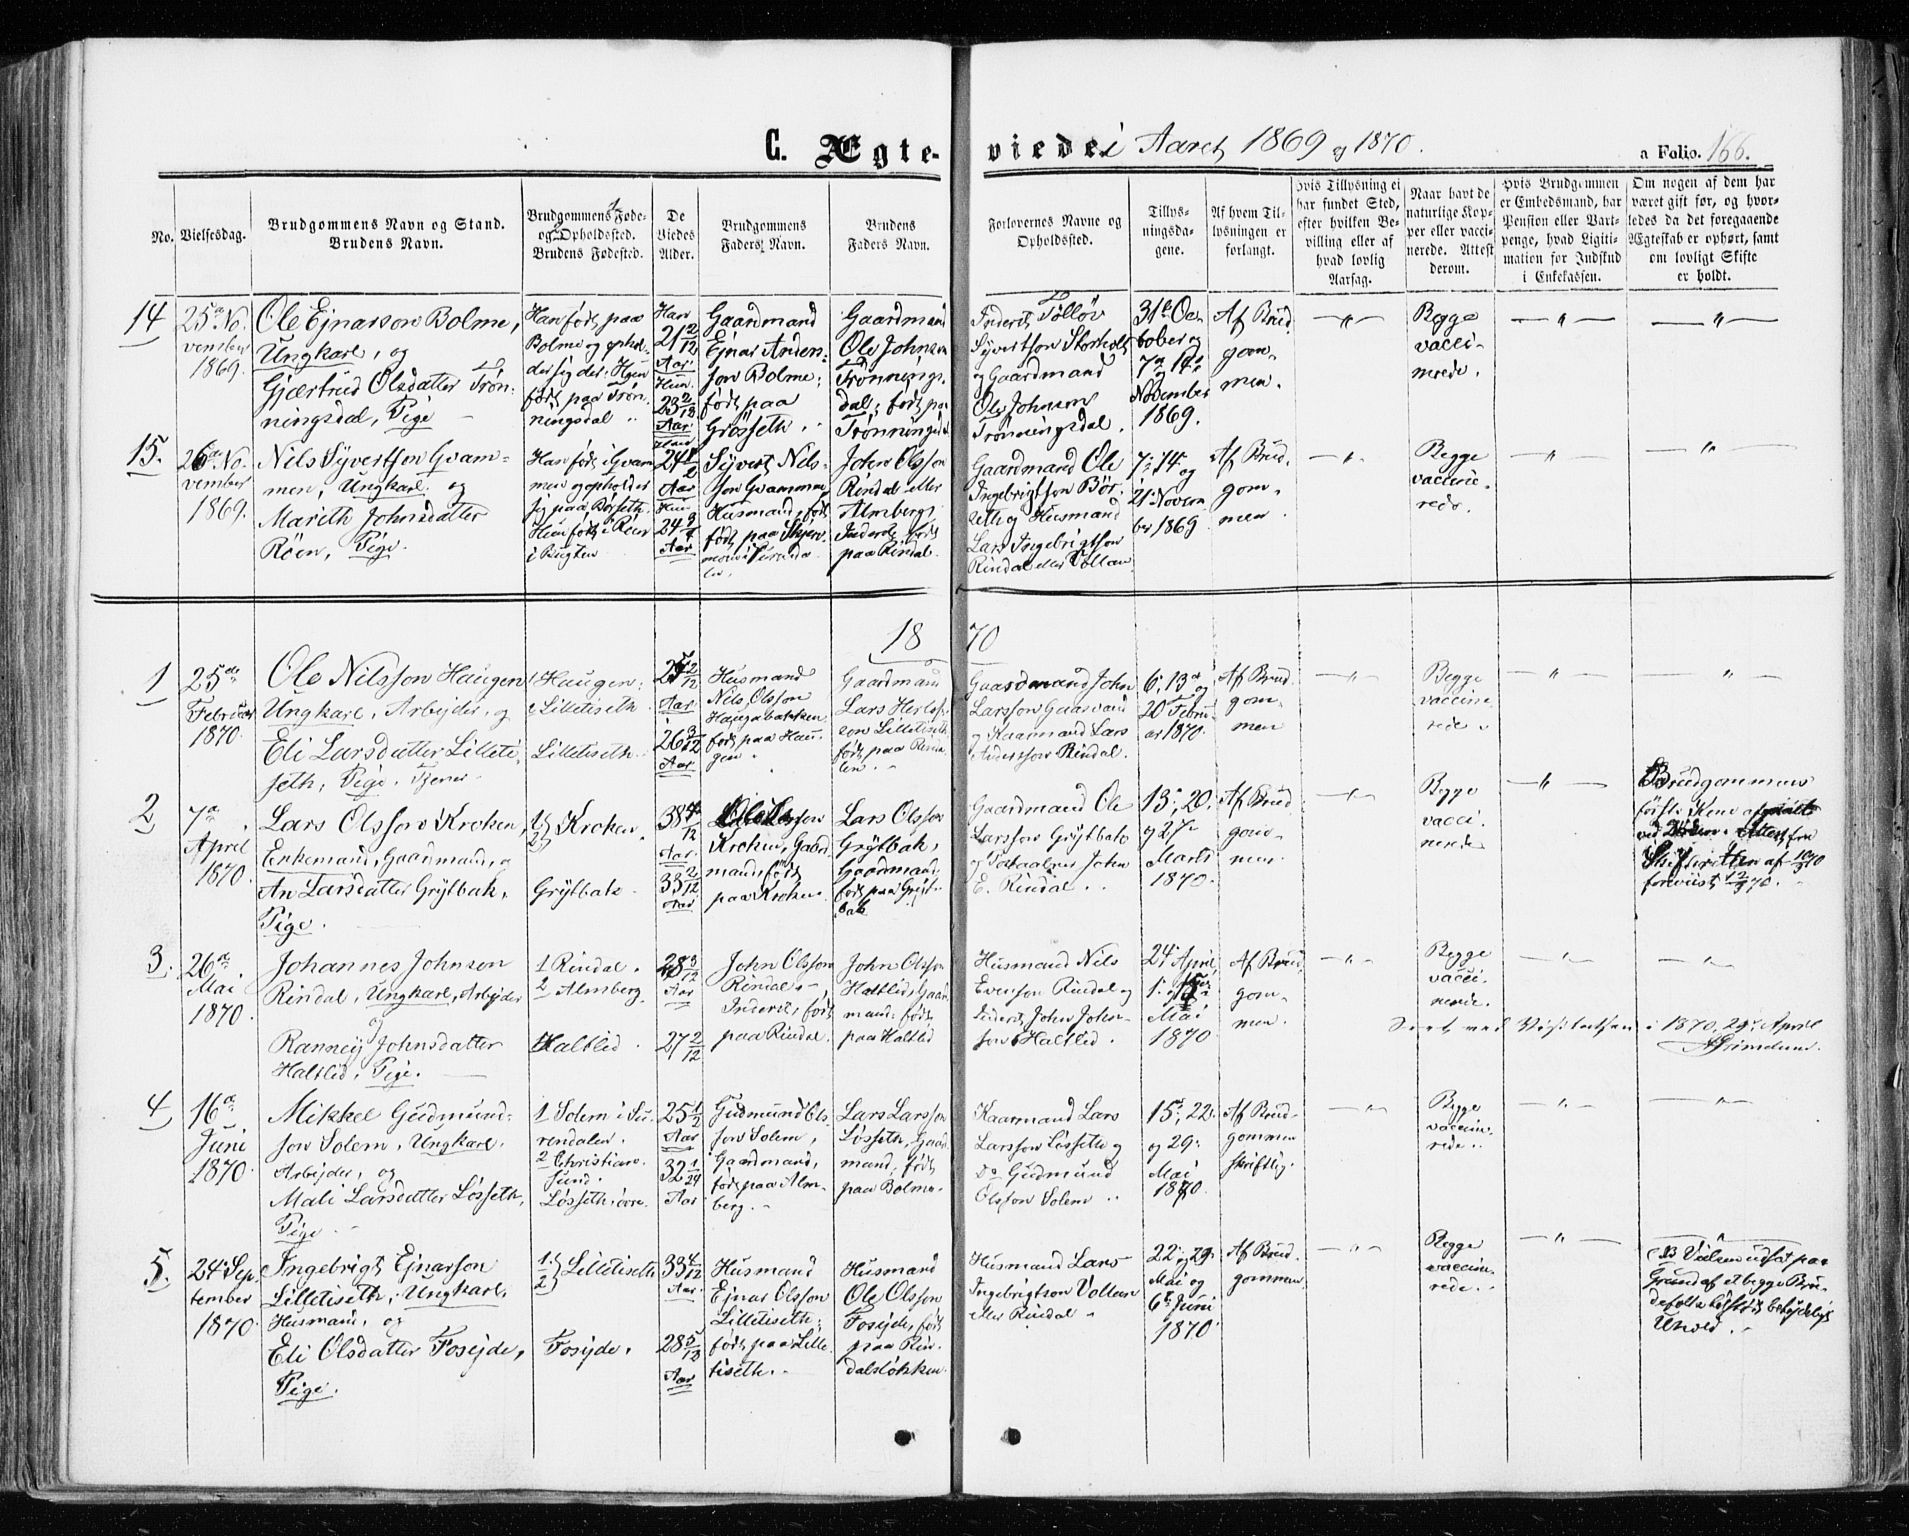 C. Ægteviede i Aaret 1869 og 1870.
a Folio. 166.
No.
Vielsesdag.
Brudgommens Navn og Stand.
Brudens Navn.
Brudgommens Føde-
og Opholdssted.
Brudens Fødested.
De
Viedes
Alder.
Brudgommens
Faders Navn.
Brudens
Faders Navn.
Forlovernes Navne og
Opholdssted.
Tillys-
ningsda-
gene.
Af hvem Til-
lysningen er
forlangt.
Hvis Tillysning ei
har fundet Sted,
efter hvilken Be-
villing eller af
hvad lovlig
Aarsag.
Naar havt de
naturlige Kop-
per eller vacci-
nerede. Attest
derom.
Hvis Brudgommen
er Embedsmand, har
Pension eller Vart-
penge, hvad Ligiti-
mation for Indskud
i Enkekassen.
Om nogen af dem har
været gift før, og hvor-
ledes da det foregaaende
Ægteskab er ophørt, samt
om lovligt Skifte
er holdt.
14
25de No-
vember
1869.
Ole Ejnarsson Bolme,
Ungkarl, og
Gjertrud Olsdatter Trøn-
ningsdal, Pige
Han født paa
Bolme og ophol-
der sig der; Hun
født paa Trøn-
ningsdal
Han
21 2/12
Aar.
Hun
23 2/12
Aar
Gaardmand
Ejnar Anders-
son Bolme;
født paa
Grøsseth.
Gaardmand
Ole Johnsen
Trønnings-
dal; født paa
Trønningsdal
Inderst Tølløv
Syvertson Storholt
og Gaardmand
Ole Johnsen
Trønningsdal.
31te Oc-
tober og
7de og 14de
November
1869.
Af Brud-
gom-
men.
Begge
vacci-
nerede.
15.
26de No-
vember
1869.
Nils Syvertson Gvam-
men, Ungkarl og
Marith Johnsdatter
Røen, Pige.
Han født i Gvam-
men og opholder
sig paa Børseth.
Hun født i Røen
i Bugten
24
Aar
Hun
24
Aar
Syvert Nils-
son Gvammen
Husmand, født
født paa Skjer-
John Olsson
Rindal eller
Almberg,
Inderst, født
paa Rindal.
Gaardmand Ole
Ingebrigtson Bør-
seth og Husmand
Lars Ingebrigtson
Rindal eller Vollan.
7de 14de og
21 Novem-
ber 1869.
Af Brud-
gom-
men.
Begge
vaccine-
rede.
1870
1
25de
Februar
1870.
Ole Nilsson Haugen
Ungkarl, Arbejder, og
Eli Larsdatter Lilleti-
seth, Pige. Tjener.
1 Haugen.
2 Lilletiseth.
Lilletiseth.
2/12
Aar.
26 3/12
Aar
Husmand
Nils Olsson
Haugabakken
født paa Hau-
gen.
Gaardmand
Lars Herlef-
son Lilletiseth
født paa Rinda-
len.
Gaardmand John
Larsson Gaasvand
og Kaarmand Lars
Anderson Rindal.
6, 13de og
20 Febru-
ar 1870.
Af Brud-
gom-
men
Begge
vaccine-
rede.
2
7de
April
1870.
Lars Olsson Kroken,
Enkemand, Gaardmand, og
An Larsdatter Grytbak,
Pige.
1 2 Kroken.
Grytbak.
38 4/12
Aar.
33 2/12
Aar
Ole Larsson
Kroken, Gaard-
mand, født
paa Kroken.
Lars Olsson
Grytbak,
Gaardmand,
født paa Gryt-
bak
Gaardmand Ole
Larsson Grytbak
og John
E. Rindal.
13, 20,
og 27de
Marts
1870.
Af Brud-
gom-
men.
Begge
vacci-
nerede
Brudgommens
første Kone afgaaet
ved Døden. Attest fra
Skifteretten af 10/3 70
foreviist 12/3 70.
3.
26de
Mai
1870.
Johannes Johnsen
Rindal, Ungkarl, Arbejder
og
Ranney Johnsdatter
Haltlid, Pige.
1 Rindal.
2 Almberg.
Haltlid.
28 3/12
Aar
27 2/12
John Olsson
Rindal,
Inderst, født
paa Rindal.
John Olsson
Haltlid, Gaard-
mand, født
paa Haltlid
Husmand Nils
Evenson Rindal og
Inderst John John-
son Haltlid.
24 April,
1
Mai
1870
Af Brud-
gom-
men.
Begge
vacci-
nerede.
Seet ved Visitatsen i 1870, 29de April
AGrimelund.
4
16de
Juni
1870.
Mikkel Gudmund-
son Solem, Ungkarl,
Arbejder, og
Mali Larsdatter Løsseth,
Pige.
1 Solem i Su-
rendalen.
2 Christian-
sund.
Løsseth, øvre
25 1/2
Aar
32 1/24
Aar
Gudmund Ols-
son Solem,
Gaardmand,
født paa Alm-
berg.
Lars Larsson
Løsseth, Gaard-
mand, født
paa Bolme.
Kaarmand Lars
Larsson Løsseth og
Do Gudmund
Olsson Solem
15, 22
og 29
Mai
1870.
Af Brud-
gommen
skriftlig.
Begge
vaccine-
rede.
5.
24 Sep-
tember
1870.
Ingebrigt Ejnarson
Lilletiseth, Ungkarl,
Husmand, og
Eli Olsdatter Foseide,
Pige.
1 2 Lilletiseth
Foseide.
33 4/12
Aar.
28
Aar
Husmand
Ejnar Olsson
Lilletiseth;
født paa Lille-
tiseth.
Husmand
Ole Olsson
Foseide, født
paa Rin-
dalsløkken
Husmand Lars
Ingebrigtson Vollan
eller Rindal
22 og 29
Mai og
6te Juni
1870.
Af Brud-
gommen.
Begge
vaccine-
rede.
NB Vielsen udsat paa
Grund af et begge Bru-
defolk
Uheld.